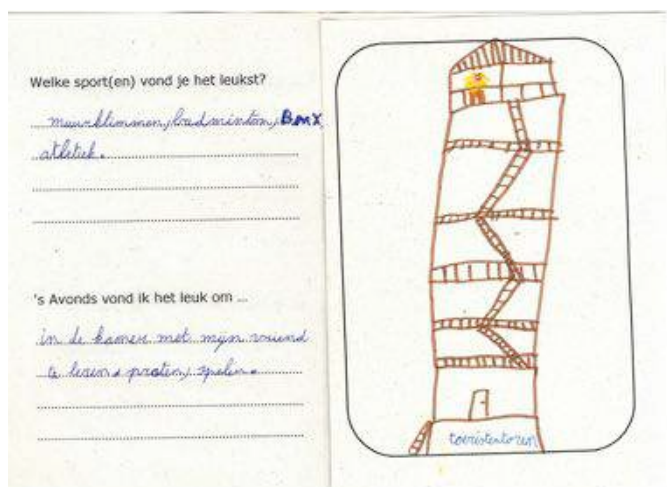 Welke sport(en) vond je het leukst?
muurklimmen, badminton, BMX,
atletiek.
's Avonds vond ik het leuk om ...
in de kamer met mijn vriend
te lezen, praten, spelen.
toeristentoren